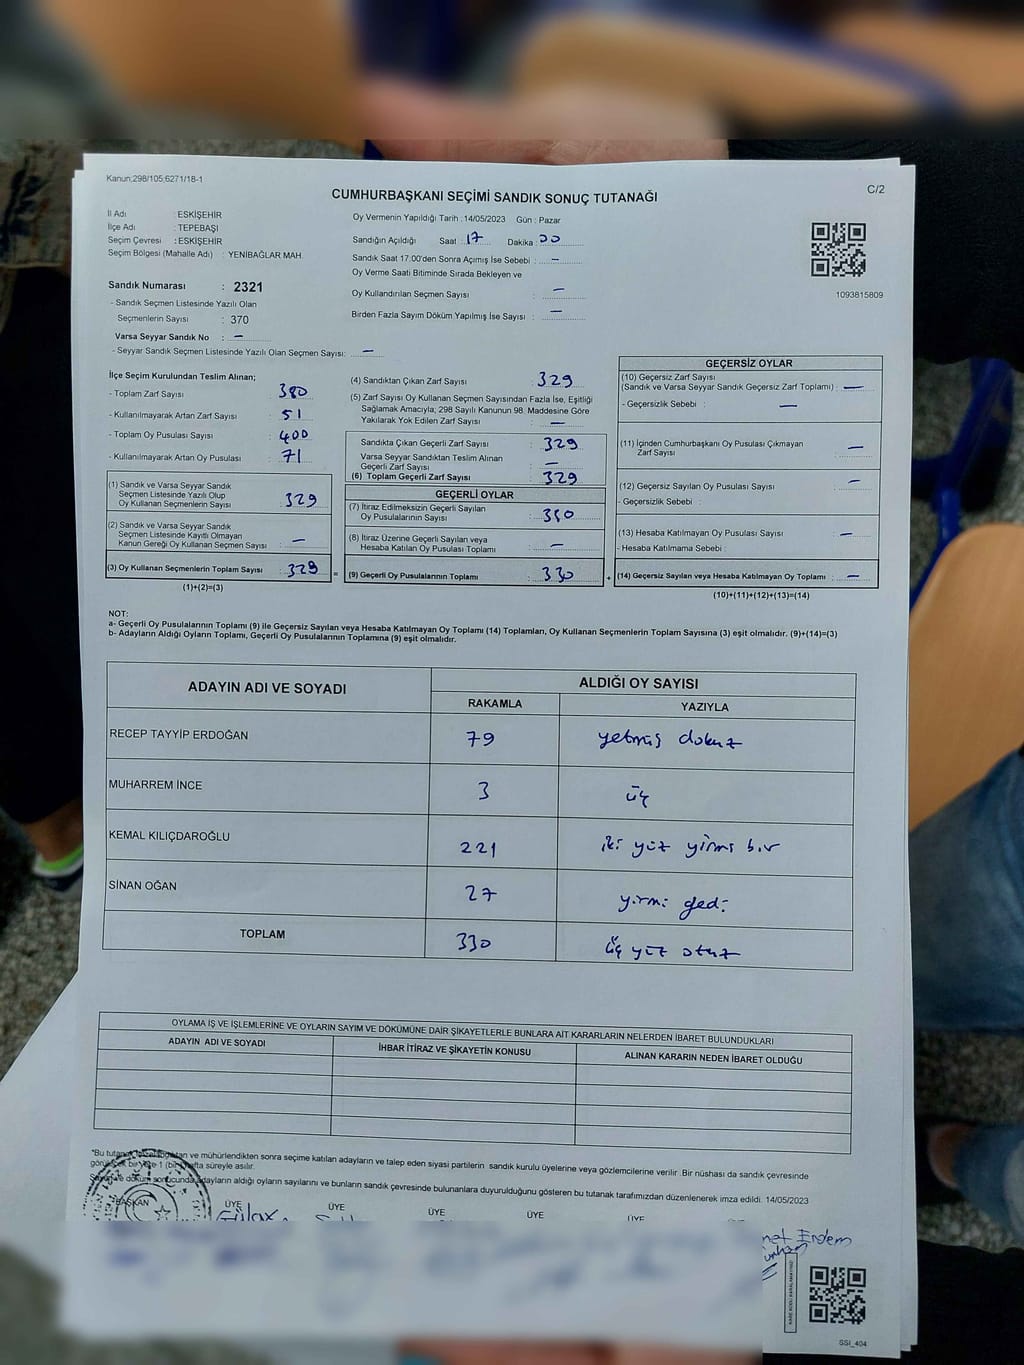 Kanun;298/105;6271/18-1
C/2
CUMHURBAŞKANI SEÇİMİ SANDIK SONUÇ TUTANAĞI
İl Adı : ESKİŞEHİR
İlçe Adı : TEPEBAŞI
Seçim Çevresi : ESKİŞEHİR
Seçim Bölgesi (Mahalle Adı) : YENİBAĞLAR MAH.
Oy Vermenin Yapıldığı Tarih :14/05/2023 Gün : Pazar
Sandığın Açıldığı Saat : 17 Dakika : 00
Sandık Saat 17:00'den Sonra Açımış İse Sebebi : —
Oy Verme Saati Bitiminde Sırada Bekleyen ve
Oy Kullandırılan Seçmen Sayısı : —
Birden Fazla Sayım Döküm Yapılmış İse Sayısı : —
1093815809
Sandık Numarası : 2321
- Sandık Seçmen Listesinde Yazılı Olan
Seçmenlerin Sayısı : 370
Varsa Seyyar Sandık No : —
- Seyyar Sandık Seçmen Listesinde Yazılı Olan Seçmen Sayısı: —
İlçe Seçim Kurulundan Teslim Alınan;
- Toplam Zarf Sayısı : 380
- Kullanılmayarak Artan Zarf Sayısı : 51
- Toplam Oy Pusulası Sayısı : 400
- Kullanılmayarak Artan Oy Pusulası : 71
(1) Sandık ve Varsa Seyyar Sandık
Seçmen Listesinde Yazılı Olup
Oy Kullanan Seçmenlerin Sayısı : 329
(2) Sandık ve Varsa Seyyar Sandık
Seçmen Listesinde Kayıtlı Olmayan
Kanun Gereği Oy Kullanan Seçmen Sayısı : —
(3) Oy Kullanan Seçmenlerin Toplam Sayısı : 329
(1)+(2)=(3)
(4) Sandıktan Çıkan Zarf Sayısı : 329
(5) Zarf Sayısı Oy Kullanan Seçmen Sayısından Fazla İse, Eşitliği
Sağlamak Amacıyla; 298 Sayılı Kanunun 98. Maddesine Göre
Yakılarak Yok Edilen Zarf Sayısı : —
Sandıkta Çıkan Geçerli Zarf Sayısı : 329
Varsa Seyyar Sandıktan Teslim Alınan
Geçerli Zarf Sayısı : —
(6) Toplam Geçerli Zarf Sayısı : 329
GEÇERLİ OYLAR
(7) İtiraz Edilmeksizin Geçerli Sayılan
Oy Pusulalarının Sayısı : 330
(8) İtiraz Üzerine Geçerli Sayılan veya
Hesaba Katılan Oy Pusulası Toplamı : —
= (9) Geçerli Oy Pusulalarının Toplamı : 330
GEÇERSİZ OYLAR
(10) Geçersiz Zarf Sayısı
(Sandık ve Varsa Seyyar Sandık Geçersiz Zarf Toplamı) : —
- Geçersizlik Sebebi : —
(11) İçinden Cumhurbaşkanı Oy Pusulası Çıkmayan
Zarf Sayısı : —
(12) Geçersiz Sayılan Oy Pusulası Sayısı : —
- Geçersizlik Sebebi :
(13) Hesaba Katılmayan Oy Pusulası Sayısı : —
- Hesaba Katılmama Sebebi :
+ (14) Geçersiz Sayılan veya Hesaba Katılmayan Oy Toplamı : —
(10)+(11)+(12)+(13)=(14)
NOT:
a- Geçerli Oy Pusulalarının Toplamı (9) ile Geçersiz Sayılan veya Hesaba Katılmayan Oy Toplamı (14) Toplamları, Oy Kullanan Seçmenlerin Toplam Sayısına (3) eşit olmalıdır. (9)+(14)=(3)
b- Adayların Aldığı Oyların Toplamı, Geçerli Oy Pusulalarının Toplamına (9) eşit olmalıdır.
ADAYIN ADI VE SOYADI ALDIĞI OY SAYISI
RAKAMLA YAZIYLA
RECEP TAYYİP ERDOĞAN 79 yetmiş dokuz
MUHARREM İNCE 3 üç
KEMAL KILIÇDAROĞLU 221 iki yüz yirmi bir
SİNAN OĞAN 27 yirmi yedi
TOPLAM 330 üç yüz otuz
OYLAMA İŞ VE İŞLEMLERİNE VE OYLARIN SAYIM VE DÖKÜMÜNE DAİR ŞİKAYETLERLE BUNLARA AİT KARARLARIN NELERDEN İBARET BULUNDUKLARI
ADAYIN ADI VE SOYADI İHBAR İTİRAZ VE ŞİKAYETİN KONUSU ALINAN KARARIN NEDEN İBARET OLDUĞU
"Bu ve mühürlendikten sonra seçime katılan adayların ve talep eden siyasi partilerin sandık kurulu üyelerine veya gözlemcilerine verilir. Bir nüshası da sandık çevresinde
süreyle asılır.
adayların aldığı oyların sayılarını ve bunların sandık çevresinde bulunanlara duyurulduğunu gösteren bu tutanak tarafımızdan düzenlenerek imza edildi. 14/05/2023
BAŞKAN ÜYE ÜYE ÜYE ÜYE ÜYE
Erdem
SSI_404